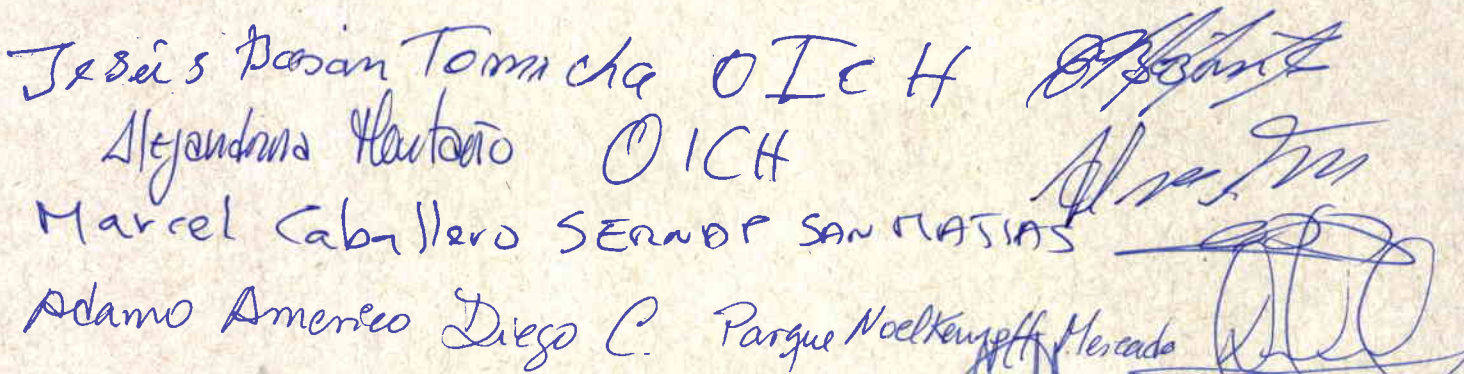 Jesús Dasan Tomicha OICH
Alejandrina Montaño OICH
Marcel Caballero SERNAP SAN MATIAS
Adamo Americo Diego C. Parque Noel Kempff Mercado